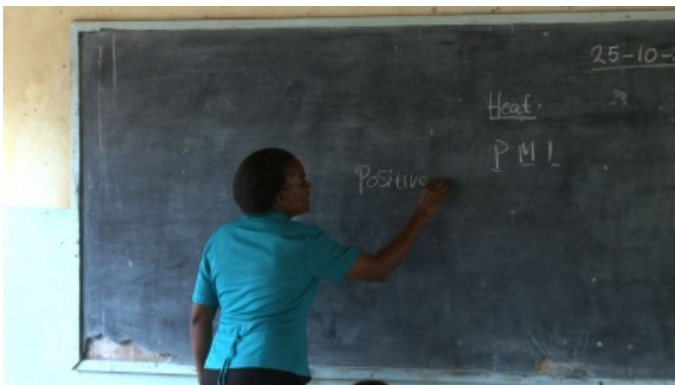 25-10-
Heat.
P M I
Positive